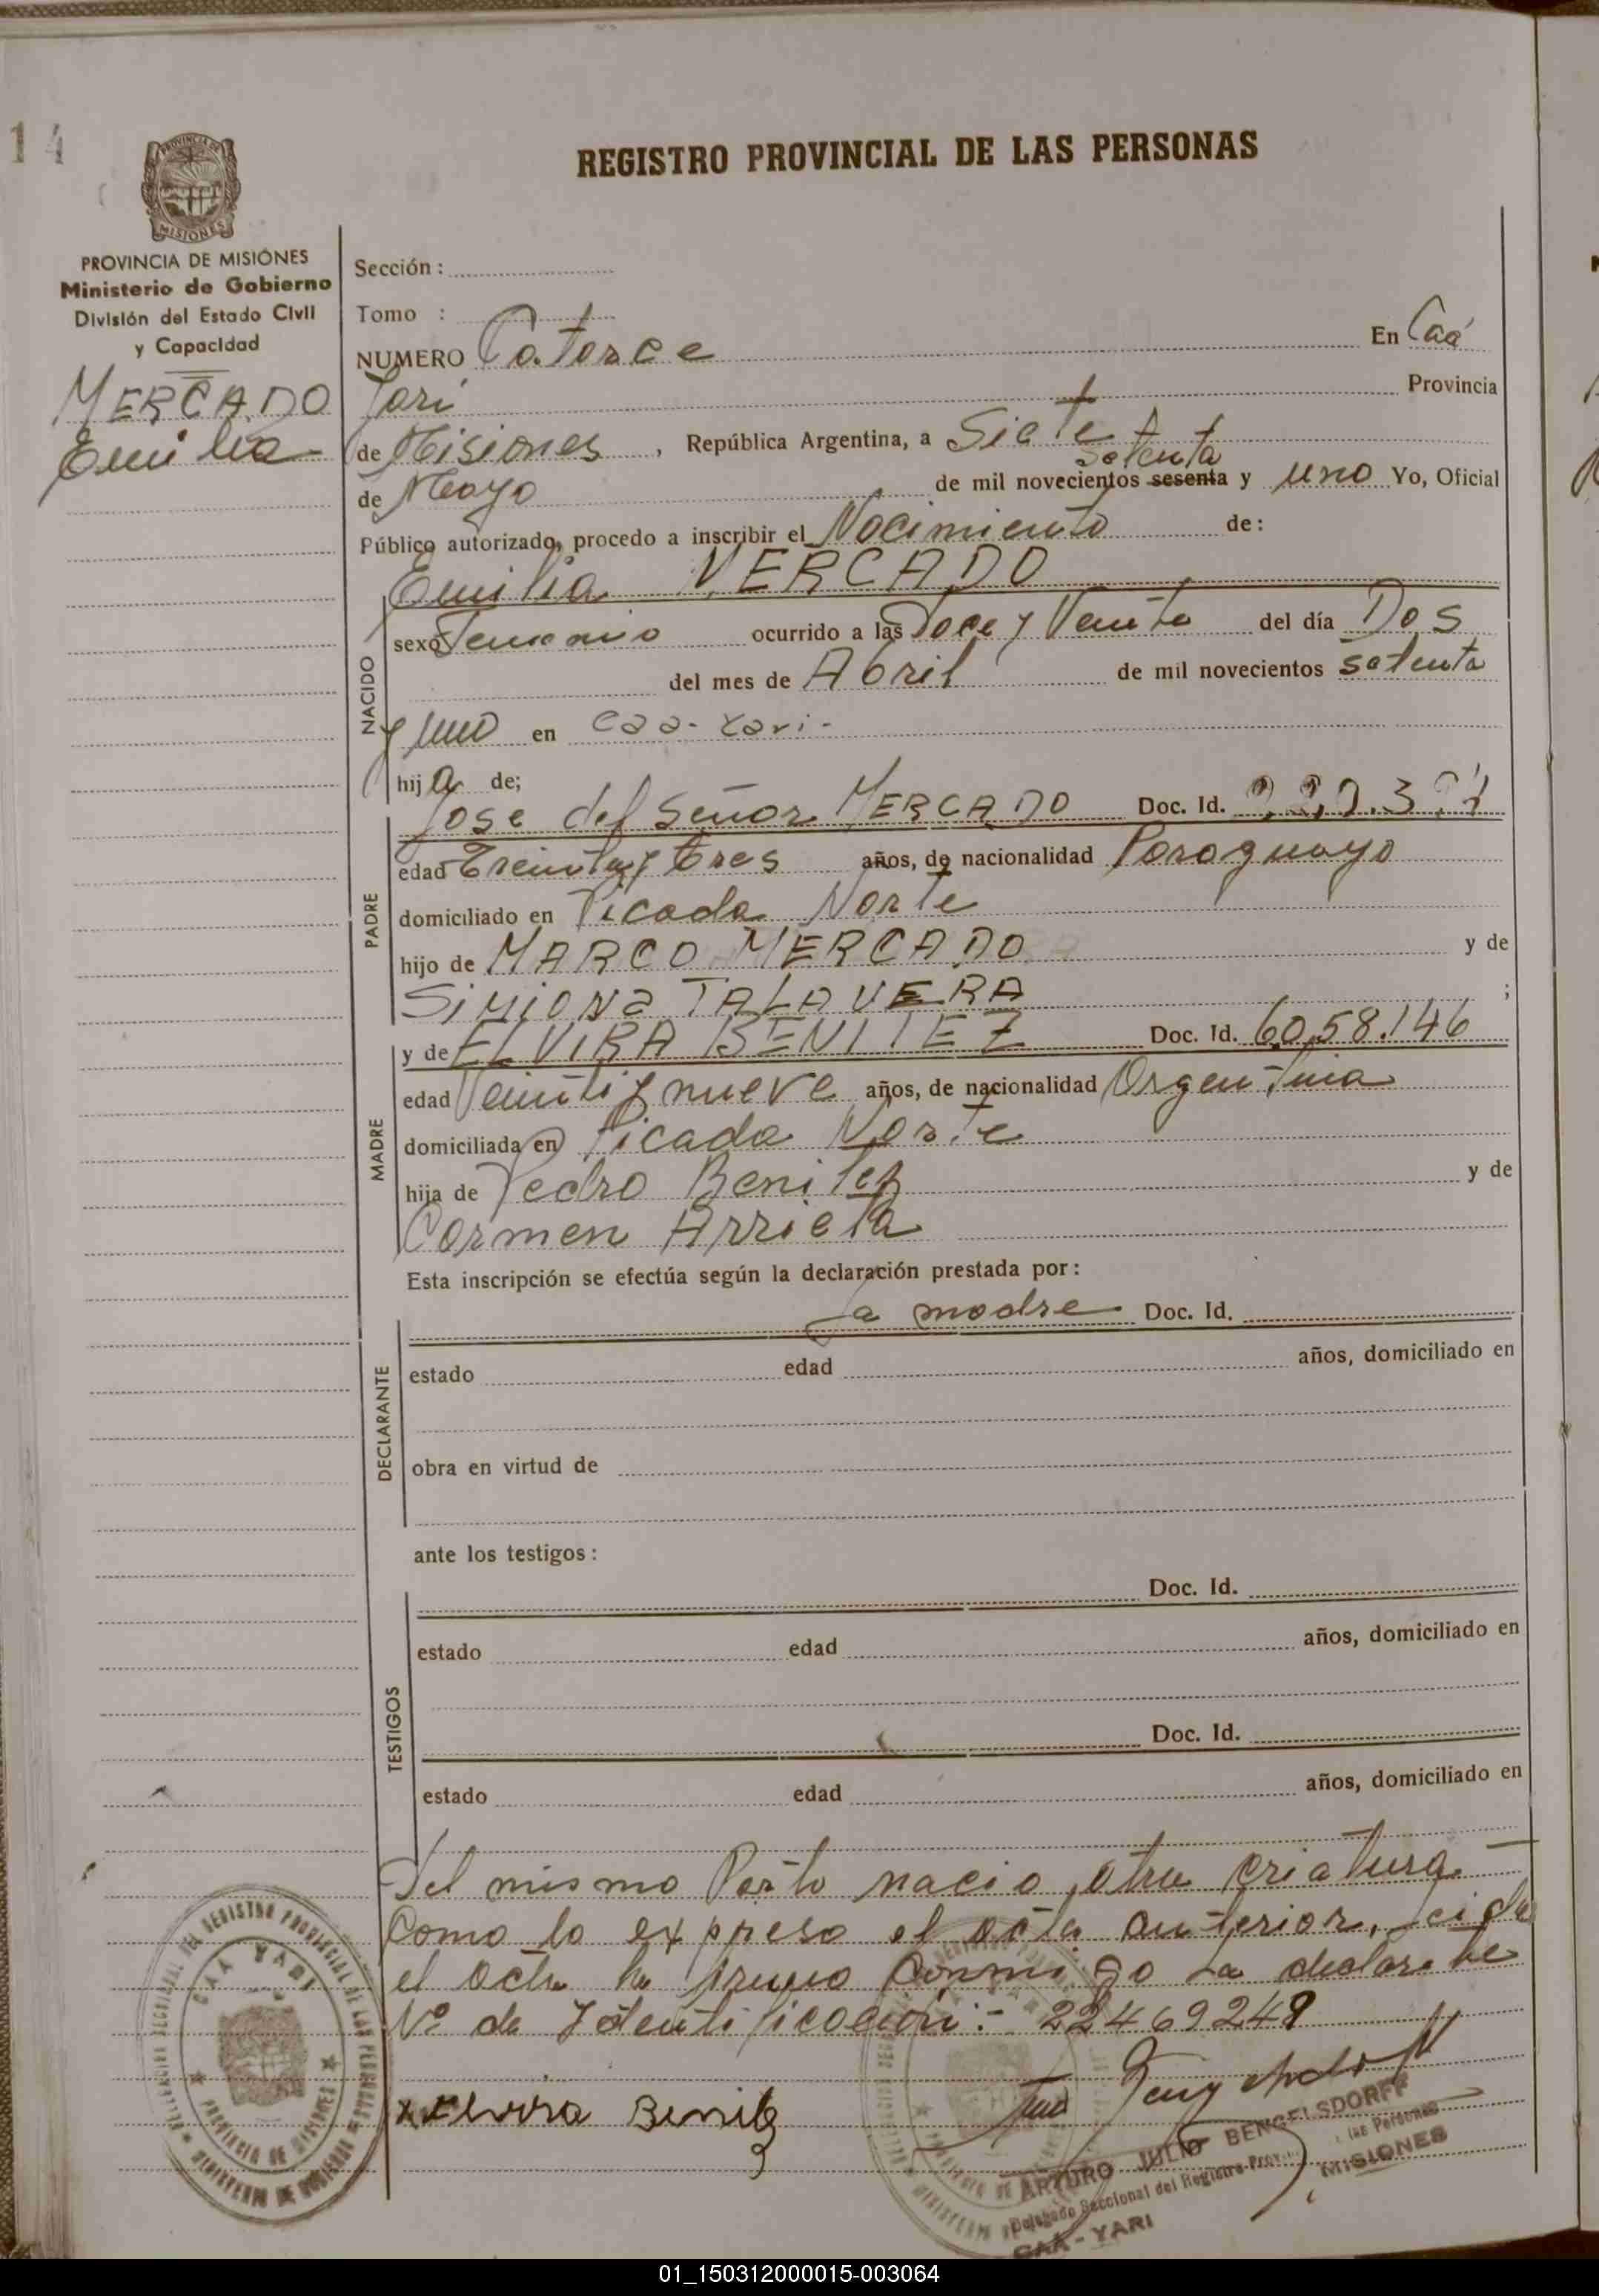 14
REGISTRO PROVINCIAL DE LAS PERSONAS
PROVINCIA DE MISIONES
Ministerio de Gobierno
División del Estado Civil
y Capacidad
MERCADO
Emilia
Sección :
Tomo :
NUMERO Catorce En Caá
Yari Provincia
de Misiones , República Argentina, a Siete
setenta
de Mayo de mil novecientos sesenta y uno Yo, Oficial
Público autorizado, procedo a inscribir el Nacimiento de:
Emilia MERCADO
NACIDO
sexo Femenino ocurrido a las Doce y Veinte del día Dos
del mes de Abril de mil novecientos setenta
y uno en Caa-Yari-
hija de;
PADRE
Jose del Señor MERCADO Doc. Id.
edad Treinta y tres años, de nacionalidad Paraguayo
domiciliado en Picada Norte
hijo de MARCO MERCADO y de
SIMIONa TALAVERA ;
MADRE
y de ELVIRA BENITEZ Doc. Id. 6.058.146
edad Veinti y nueve años, de nacionalidad Argentina
domiciliada en Picada Norte
hija de Pedro Benitez y de
Carmen Arrieta
Esta inscripción se efectúa según la declaración prestada por :
DECLARANTE
La madre Doc. Id.
estado edad años, domiciliado en
obra en virtud de
ante los testigos :
TESTIGOS
Doc. Id.
estado edad años, domiciliado en
Doc. Id.
estado edad años, domiciliado en
Del mismo Parto nacio otra criatura
Como lo expresa el acta anterior, Leida
el acta la firmo Conmigo La declarante
Nº de Identificación:- 22469249
x Elvira Benitez
CAA YARI
PROVINCIA DE MISIONES
ARTURO JULIO BENGELSDORFF
Delegado Seccional del Registro Prov. las Personas
CAA-YARI MISIONES
01_150312000015-003064